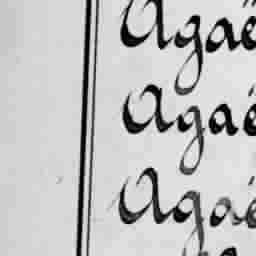 Agaë
Agaë
Agaë